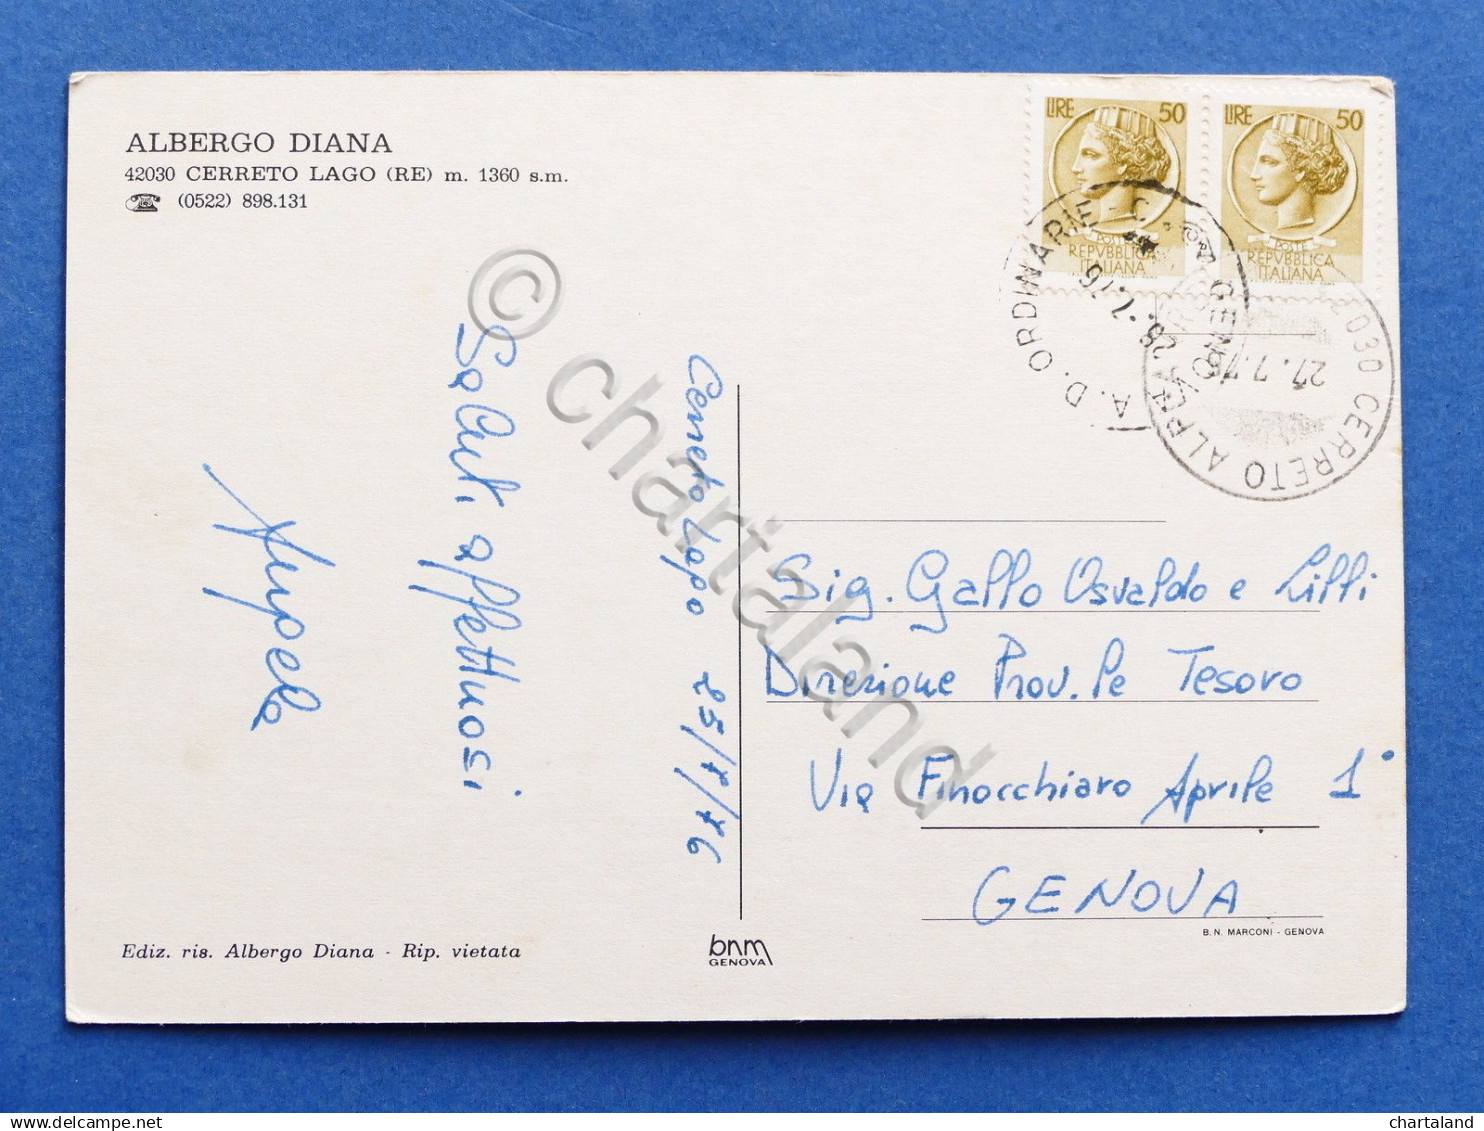 ALBERGO DIANA
42030 CERRETO LAGO (RE) m. 1360 s.m.
(0522) 898.131
LIRE 50
POSTE
REPVBBLICA
ITALIANA
LIRE 50
POSTE
REPVBBLICA
ITALIANA
A. D. ORDINARIE - C.P. GENOVA
28.7.76
2030 CERRETO ALP
27.7.76
Cerreto Lago 25/7/76
Saluti affettuosi
Angela
Sig. Gallo Osvaldo e Lilli
Direzione Prov. le Tesoro
Via Finocchiaro Aprile 1°
GENOVA
Ediz. ris. Albergo Diana - Rip. vietata
bnm
GENOVA
B.N. MARCONI - GENOVA
© chartaland
chartaland